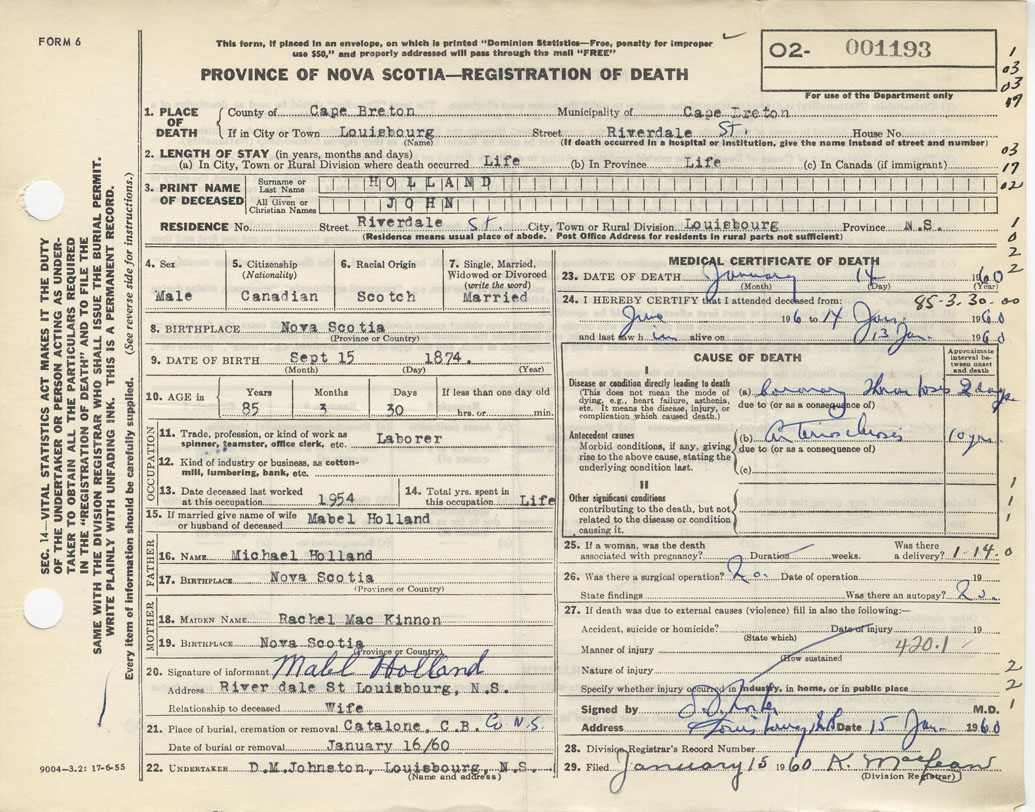 FORM 6
This form, if placed in an envelope, on which is printed "Dominion Statistics—Free, penalty for improper
use $50," and properly addressed will pass through the mail "FREE"
PROVINCE OF NOVA SCOTIA—REGISTRATION OF DEATH
O2- 001193
For use of the Department only
1. PLACE OF DEATH County of Cape Breton Municipality of Cape Breton
If in City or Town Louisbourg Street Riverdale St. House No.
(Name) (If death occurred in a hospital or institution, give the name instead of street and number)
2. LENGTH OF STAY (in years, months and days)
(a) In City, Town or Rural Division where death occurred Life (b) In Province Life (c) In Canada (if immigrant)
3. PRINT NAME OF DECEASED Surname or Last Name HOLLAND
All Given or Christian Names JOHN
RESIDENCE No. Street Riverdale St. City, Town or Rural Division Louisbourg Province N.S.
(Residence means usual place of abode. Post Office Address for residents in rural parts not sufficient)
4. Sex Male
5. Citizenship (Nationality) Canadian
6. Racial Origin Scotch
7. Single, Married, Widowed or Divorced (write the word) Married
8. BIRTHPLACE Nova Scotia
(Province or Country)
9. DATE OF BIRTH Sept 15 1874.
(Month) (Day) (Year)
10. AGE in Years Months Days If less than one day old
85 3 30 hrs. or min.
OCCUPATION
11. Trade, profession, or kind of work as spinner, teamster, office clerk, etc. Laborer
12. Kind of industry or business, as cotton-mill, lumbering, bank, etc.
13. Date deceased last worked at this occupation 1954
14. Total yrs. spent in this occupation Life
15. If married give name of wife or husband of deceased Mabel Holland
FATHER
16. NAME Michael Holland
17. BIRTHPLACE Nova Scotia
(Province or Country)
MOTHER
18. MAIDEN NAME Rachel Mac Kinnon
19. BIRTHPLACE Nova Scotia
(Province or Country)
20. Signature of informant Mabel Holland
Address River dale St Louisbourg, N.S.
Relationship to deceased Wife
21. Place of burial, cremation or removal Catalone, C.B. Co. N.S.
Date of burial or removal January 16/60
22. UNDERTAKER D.M.Johnston, Louisbourg, N.S.
(Name and address)
MEDICAL CERTIFICATE OF DEATH
23. DATE OF DEATH January 14 1960
(Month) (Day) (Year)
24. I HEREBY CERTIFY that I attended deceased from: 85-3-30-00
June 196 to 14 Jan. 1960
and last saw him alive on 13 Jan. 1960
CAUSE OF DEATH
Approximate interval between onset and death
I
Disease or condition directly leading to death
(This does not mean the mode of dying, e.g., heart failure, asthenia, etc. It means the disease, injury, or complication which caused death.)
(a) Coronary Thrombosis 2 days
due to (or as a consequence of)
Antecedent causes
Morbid conditions, if any, giving rise to the above cause, stating the underlying condition last.
(b) Arteriosclerosis 10 yrs.
due to (or as a consequence of)
(c)
II
Other significant conditions
contributing to the death, but not related to the disease or condition causing it.
25. If a woman, was the death associated with pregnancy? Duration weeks. Was there a delivery? 1-14.0
26. Was there a surgical operation? No. Date of operation 19
State findings Was there an autopsy? No.
27. If death was due to external causes (violence) fill in also the following:—
Accident, suicide or homicide? Date of injury 19
(State which)
Manner of injury 420.1
(How sustained
Nature of injury
Specify whether injury occurred in industry, in home, or in public place
Signed by M.D.
Address Louisbourg N.S. Date 15 Jan. 1960
28. Division Registrar's Record Number
29. Filed January 15 1960 K. MacLean
(Division Registrar)
SEC. 14—VITAL STATISTICS ACT MAKES IT THE DUTY
OF THE UNDERTAKER OR PERSON ACTING AS UNDER-
TAKER TO OBTAIN ALL THE PARTICULARS REQUIRED
IN THE "REGISTRATION OF DEATH" AND TO FILE THE
SAME WITH THE DIVISION REGISTRAR WHO SHALL ISSUE THE BURIAL PERMIT.
WRITE PLAINLY WITH UNFADING INK. THIS IS A PERMANENT RECORD.
Every item of information should be carefully supplied. (See reverse side for instructions.)
9004—3.2: 17-6-55
1
03
03
03
17
02
1
0
2
2
1
1
1
2
2
1